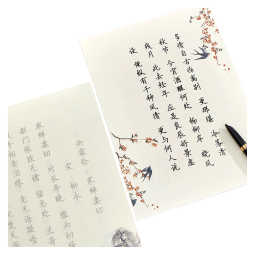 多情自古伤离别 更那堪 冷落清
秋节 今宵酒醒何处 杨柳岸 晓风
残月 此去经年 应是良辰好景虚
设 便纵有千种风情 更与何人说
雨霖铃
宋 柳永
寒蝉凄切
对长亭晚 骤雨初歇
都门帐饮无绪 留恋处